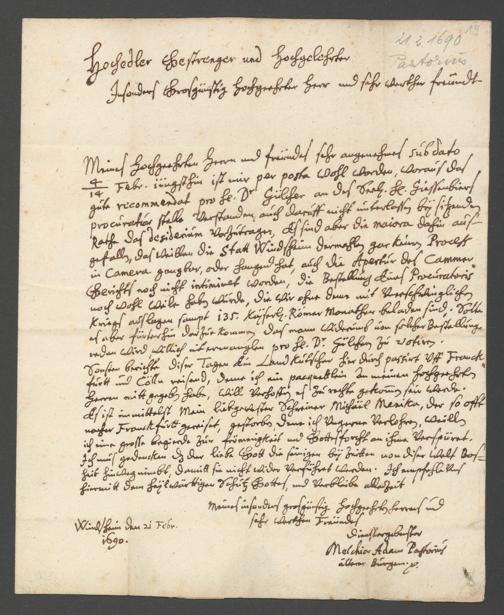 19
21 2. 1690
Pastorius
Hochedler Gestrenger und Hochgelehrter
Insonders Grosgünstig Hochgeehrter Herr und sehr werther freündt
Meines Hochgeehrten Herrn und freündes sehr angenehmes sub dato
4/14 Febr. iüngsthin ist mir per posta wohl worden, woraus das
gute recommendat pro H. Dr. Gülcher an des Seel. H.
procuratur stelle verstanden, auch darauff nicht unterlassen bey sitzenden
Rath das desiderium vorzutragen, Es sind aber die maiora dahin aus-
gefallen, das weillen die Statt Windsheim dermahlen gar keinen Process
in Camera gangbar, oder hangend hat, auch die Apertur des Cammer
Gerichts noch nicht intimiret worden, die Bestellung eines Procuratoris
noch wohl weile haben würde, die wir ohne dem mit
Kriegs auslagen sampt 135. Kayserl. Römer Monathen beladen sind. Solte
es aber fürterhin darzu kommen, das man widerumb von solcher Bestellung
reden wird will ich pro H. Dr. Gülchen zu votiren.
Sonsten berichte dieser Tagen ein Landkutscher hie durch passirt uff Franck-
furt und Cölln reisend, deme ich ein pacquetlein an meinen Hochgeehrten
Herren mitt gegeben habe, will verhoffen es zu rechte gekommen sein werde.
Es ist inmittelst Mein liebgewester Schreiner Michael Merika, der so offt
nacher Franckfurt gereiset, gestorben, deme ich ungerne verlohren, weillen
ich eine grosse begierde zur frömmigkeit und Gottesforcht an ihme verspüret.
Ich mus gedencken das der liebe Gott die seinigen bey Zeiten von dieser Welt Bos-
heit hinweg nimbt, damitt sie nicht wider verführet werden. Ich empfehle uns
hiermitt dem heylwürtigen Schutz Gottes, und verbleibe allezeit
Meines insonders grosgünstig Hochgeehrt Herrens und
sehr werthen Freündes
Windsheim den 21 Febr.
1690.
Dienstergebenster
Melchior Adam Pastorius
älterer Burgerm.